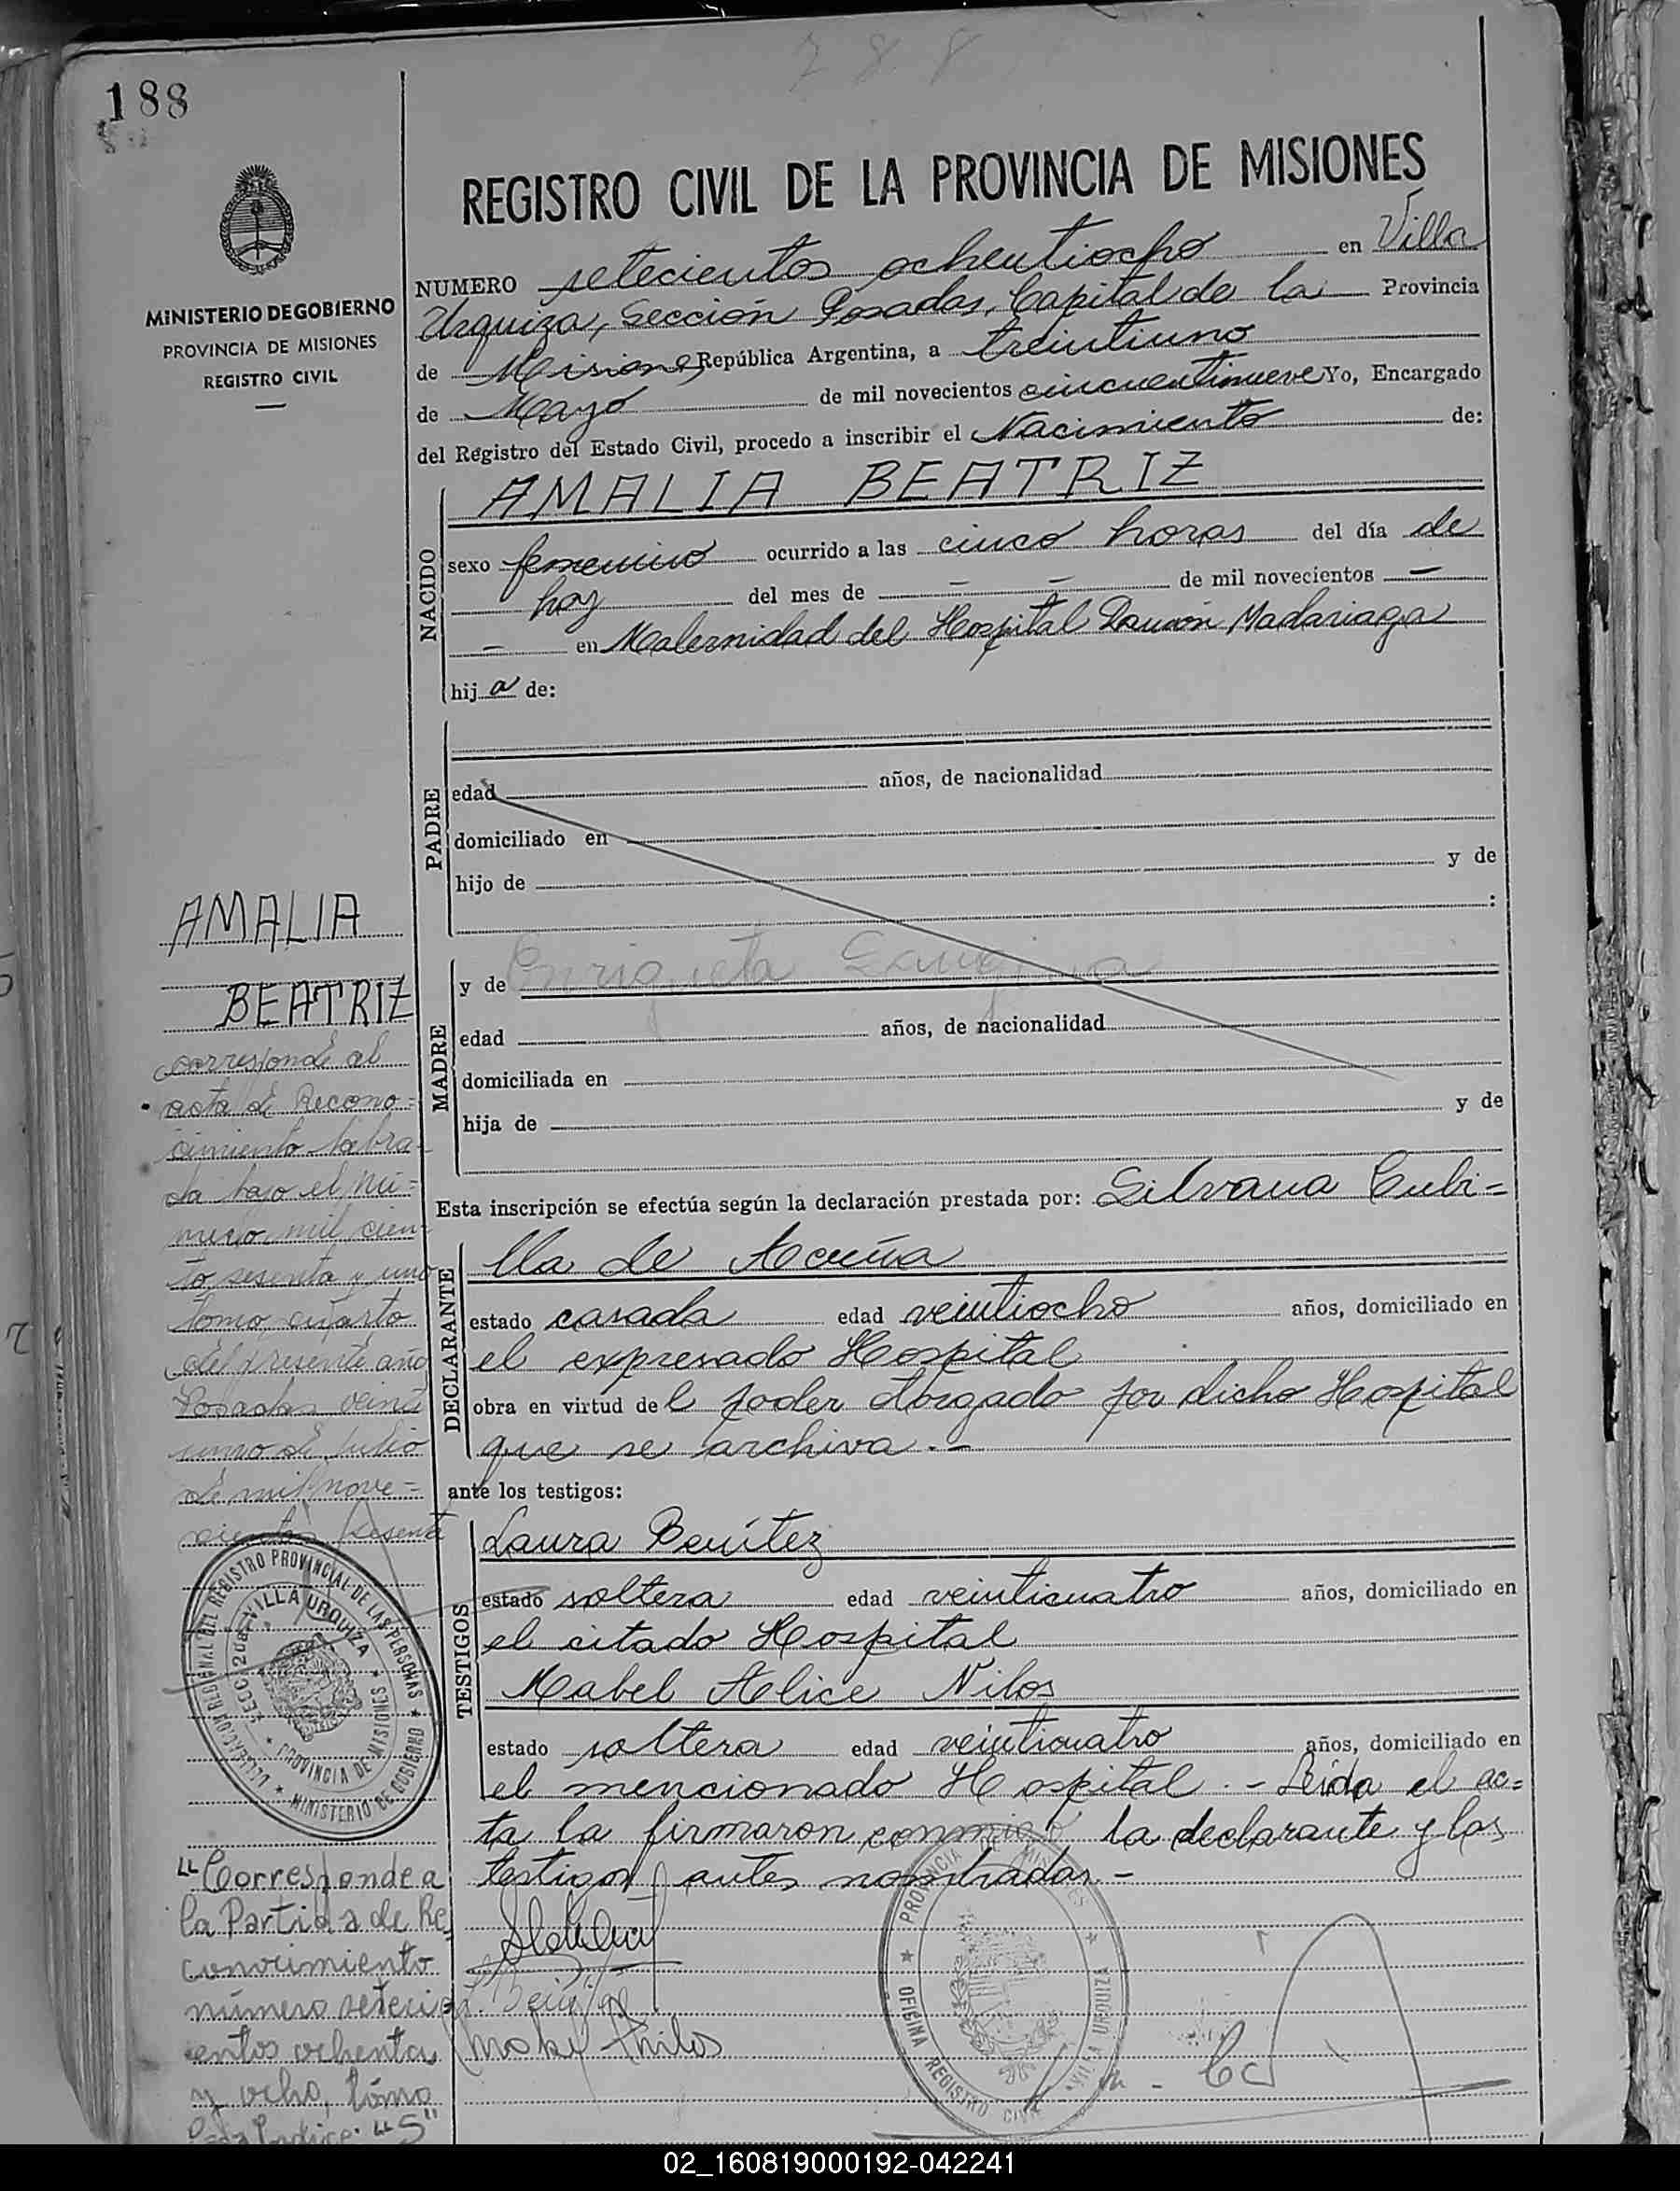 188
788
MINISTERIO DE GOBIERNO
PROVINCIA DE MISIONES
REGISTRO CIVIL
REGISTRO CIVIL DE LA PROVINCIA DE MISIONES
NUMERO setecientos ochentiocho en Villa
Urquiza, Sección Posadas, Capital de la Provincia
de Misiones República Argentina, a treintiuno
de Mayo de mil novecientos cincuentinueve Yo, Encargado
del Registro del Estado Civil, procedo a inscribir el Nacimiento de:
NACIDO
AMALIA BEATRIZ
sexo femenino ocurrido a las cinco horas del día de
hoy del mes de — — de mil novecientos —
— en Maternidad del Hospital Ramón Madariaga
hija de:
PADRE
edad años, de nacionalidad
domiciliado en
hijo de y de
:
MADRE
y de Enriqueta
edad años, de nacionalidad
domiciliada en
hija de y de
Esta inscripción se efectúa según la declaración prestada por: Silvana Cubi=
DECLARANTE
lla de Acuña
estado casada edad veintiocho años, domiciliado en
el expresado Hospital
obra en virtud del poder otorgado por dicho Hospital
que se archiva.-
ante los testigos:
TESTIGOS
Laura Benítez
estado soltera edad veinticuatro años, domiciliado en
el citado Hospital
Mabel Alice Nilos
estado soltera edad veinticuatro años, domiciliado en
el mencionado Hospital.- Leída el ac=
ta la firmaron conmigo la declarante y los
testigos antes nombrados.-
AMALIA
BEATRIZ
corresponde al
acta de Recono=
cimiento labra-
da bajo el nú=
mero mil cien-
to sesenta y uno
tomo cuarto
del presente año
Posadas veinti
uno de Julio
de mil nove=
cientos sesenta
DELEGACION REGIONAL DEL REGISTRO PROVINCIAL DE LAS PERSONAS
SECC. 2da. VILLA URQUIZA
PROVINCIA DE MISIONES
MINISTERIO DE GOBIERNO
"Corresponde a
la Partida de Re
conocimiento
número seteci
entos ochenta
y ocho, tómo
Indice: "S"
PROVINCIA DE MISIONES
OFICINA REGISTRO CIVIL
VILLA URQUIZA
02_160819000192-042241